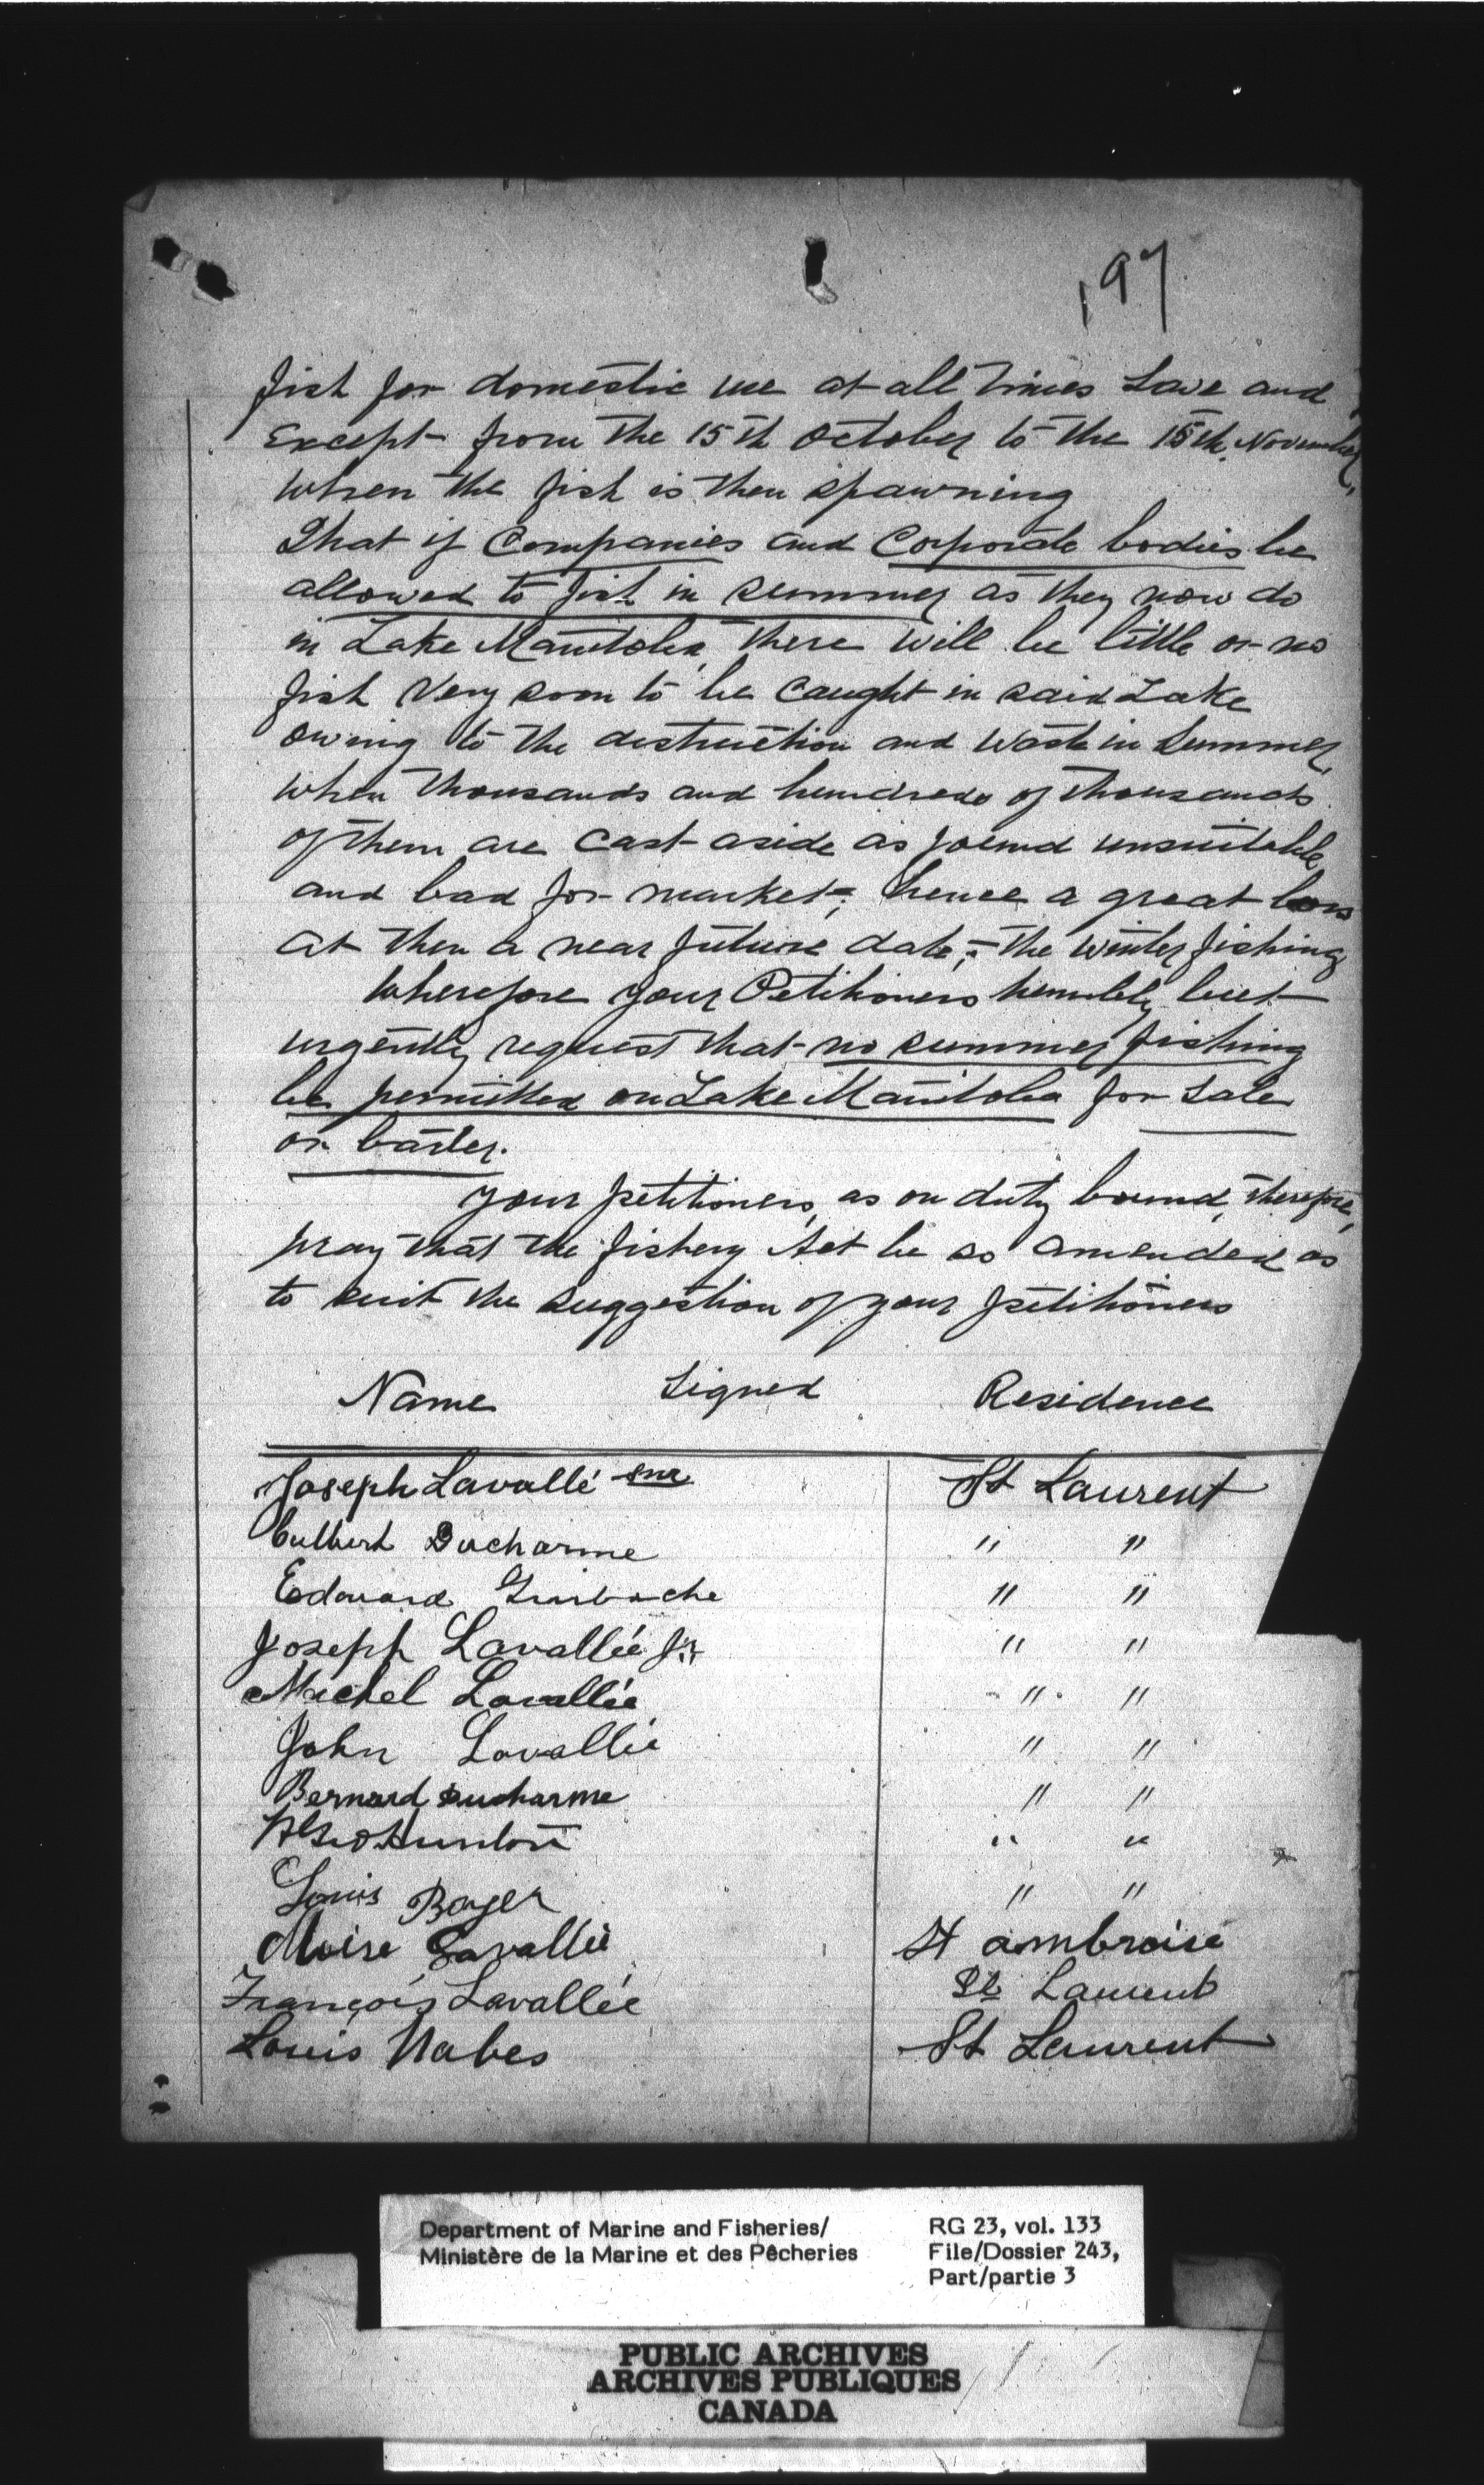 197
fish for domestic use at all times save and
Except from the 15th October to the 15th November,
when the fish is then spawning
That if Companies and Corporate bodies be
allowed to fish in summer as they now do
in Lake Manitoba there will be little or no
fish very soon to be caught in said Lake
owing to the destruction and waste in Summer,
when thousands and hundreds of thousands
of them are cast aside as found unsuitable
and bad for market; hence a great loss
at then a near future date, - the winter fishing
Wherefore your Petitioners humbly but
urgently request that no summer fishing
be permitted on Lake Manitoba for sale
or barter.
Your petitioners, as on duty bound, therefore,
pray that the fishery Act be so amended as
to suit the suggestion of your petitioners
Name Signed Residence
Joseph Lavallé snr St Laurent
Culbert Ducharme " "
Edouard " "
Joseph Lavallée Jr. " "
Michel Lavallée " "
John Lavallée " "
Bernard Ducharme " "
" "
Louis Boyer " "
Moise Lavallée St ambroise
François Lavallée St Laurent
Louis Nabes St Laurent
Department of Marine and Fisheries/ RG 23, vol. 133
Ministère de la Marine et des Pêcheries File/Dossier 243,
Part/partie 3
PUBLIC ARCHIVES
ARCHIVES PUBLIQUES
CANADA